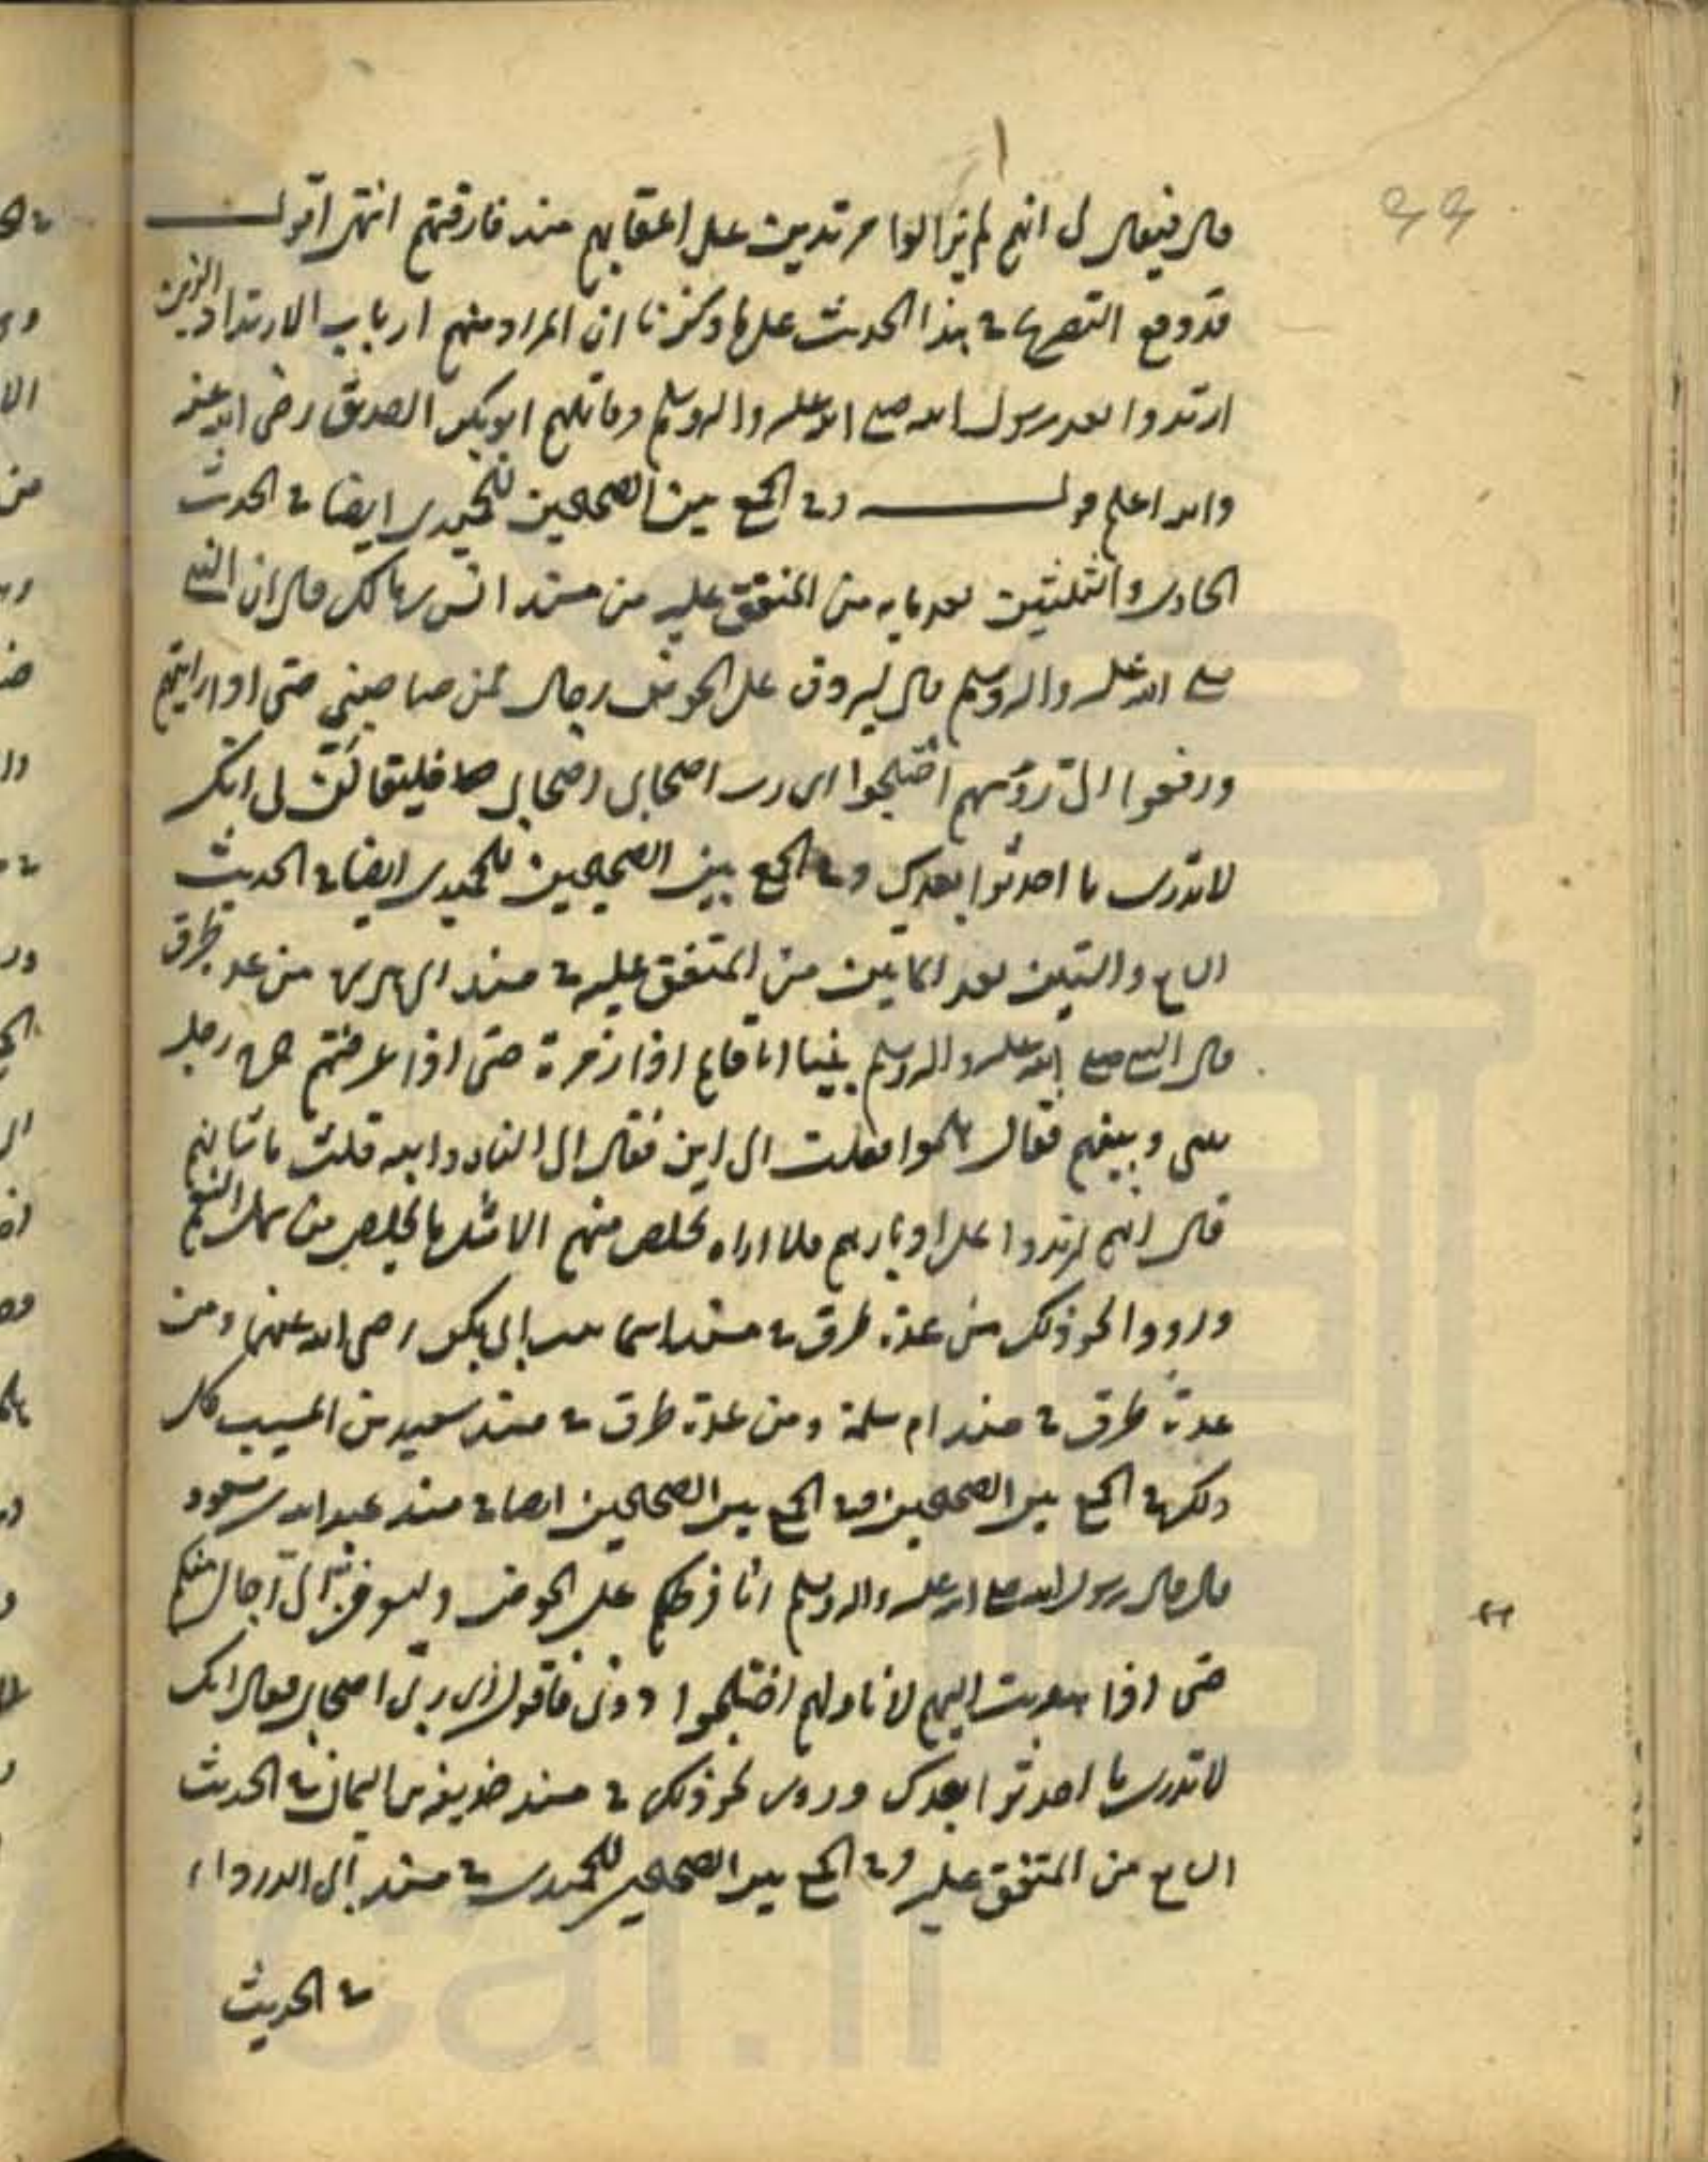 قال فيقال لى انهم لم يزالوا مرتدين على اعقابهم منذ فارقتهم انتهى اقول
قد وقع التصريح فى هذا الحديث على ما ذكرنا ان المراد منهم ارباب الارتداد الذين
ارتدوا بعد رسول الله صلى الله عليه واله وسلم وقاتلهم ابوبكر الصديق رضى الله عنه
والله اعلم قوله وفى الجمع بين الصحيحين للحميدى ايضا فى الحديث
الحادى والثلثين بعد مايه من المتفق عليه من مسند انس بن مالك قال ان النبى
صلى الله عليه واله وسلم قال ليردن على الحوض رجال ممن صاحبنى حتى اذا رايتهم
ورفعوا الىّ رؤسهم اختلجوا اى رب اصحابى اصحابى فليقالنّ لى انك
لا تدرى ما احدثوا بعدك وفى الجمع بين الصحيحين للحميدى ايضا فى الحديث
السابع والستين بعد المايتين من المتفق عليه فى مسند ابى هريرة من عدة طرق
قال النبى صلى الله عليه واله وسلم بينا انا قايم اذا زمرة حتى اذا عرفتم خرج رجل
بينى وبينهم فقال هلموا فقلت الى اين فقال الى النار والله قلت ما شانهم
قال انهم ارتدوا على ادبارهم فلا اراه يخلص منهم الا مثل ما يخلص من همل النعم
ورووا نحو ذلك من عدة طرق فى مسند اسما بنت ابى بكر رضى الله عنهما ومن
عدة طرق فى مسند ام سلمة ومن عدة طرق فى مسند سعيد بن المسيب كل
ذلك فى الجمع بين الصحيحين وفى الجمع بين الصحيحين ايضا فى مسند عبد الله بن مسعود
قال قال رسول الله صلى الله عليه واله وسلم انا فرطكم على الحوض وليرفعن الىّ رجال منكم
حتى اذا هويت اليهم لاناولهم اختلجوا دونى فاقول اى ربى اصحابى فيقال انك
لا تدرى ما احدثوا بعدك وروى نحو ذلك فى مسند حذيفه بن اليمان فى الحديث
السابع من المتفق عليه وفى الجمع بين الصحيحين للحميدى فى مسند ابى الدرداء
فى الحديث